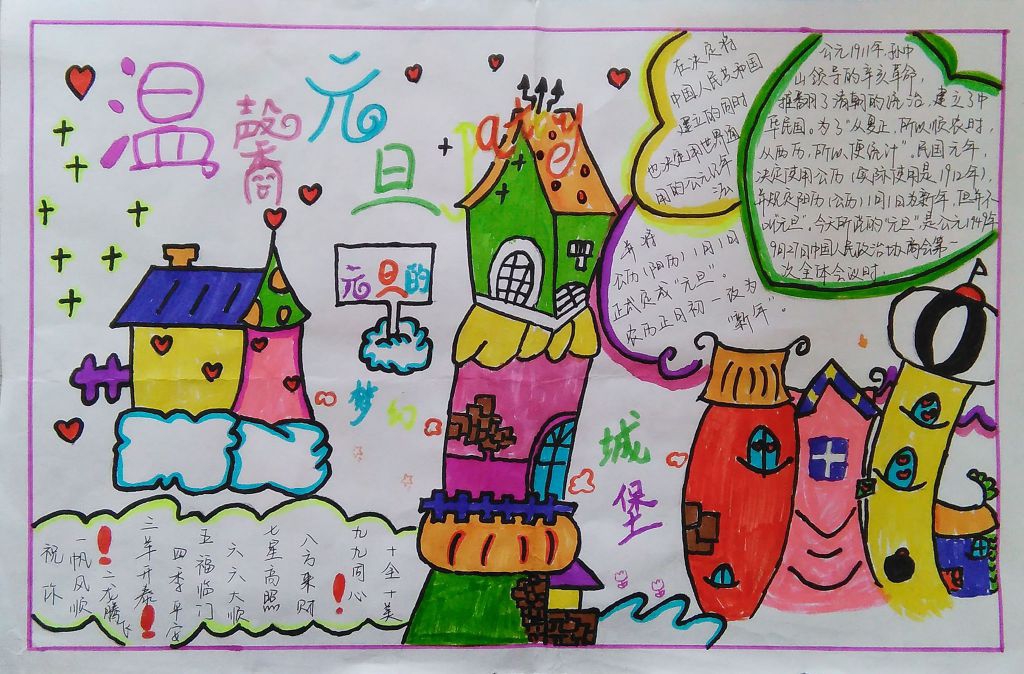 温馨元旦
公元1911年,孙中
山领导的辛亥革命,
推翻了清朝的统治,建立了中
华民国。为了"从夏正,所以顺农时,
从西历,所以便统计",民国元年,
决定使用公历(实际使用是1912年),
并规定阳历(公历)1月1日为新年,但并不
叫"元旦"。今天所说的"元旦",是公元1949年
9月27日中国人民政治协商会第一
次全体会议时,
在决定将
中国人民共和国
建立的同时
也决定用世界通
用的公元纪年
法
并将
公历(阳历)1月1日
正式定成"元旦"。
农历正月初一改为
"新年"。
元旦的
梦幻城堡
祝你
一帆风顺!
二龙腾飞
三羊开泰!
四季平安
五福临门
六六大顺
七星高照
八方来财!
九九同心
十全十美